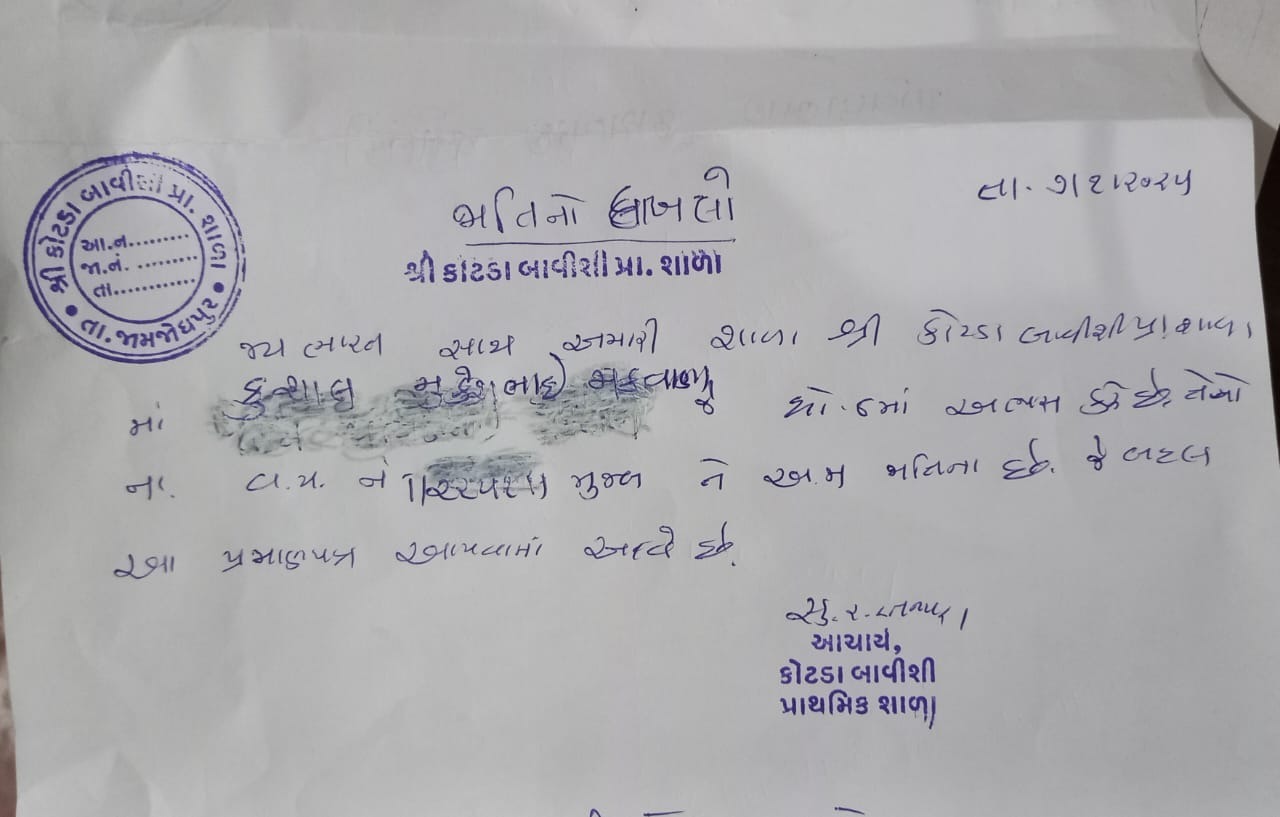 શ્રી કોટડા બાવીશી પ્રા. શાળા
આ.નં.........
જા.નં. .........
તા............
તા. જામજોધપુર
તા.
ભતિનો દાખલો
શ્રી કોટડા બાવીશી પ્રા. શાળા
જય ભારત સાથ અમારી શાળા શ્રી કોટડા બાવીશી પ્રા. શાળા
માં મુકેશભાઇ મકવાણા ધો.૬માં અભ્યાસ કરે છે. તેઓ
ના. વ.પ. નં મુજબ તે ભતિના છે. જે બદલ
આ પ્રમાણપત્ર આપવામાં આવે છે.
આચાર્ય,
કોટડા બાવીશી
પ્રાથમિક શાળા